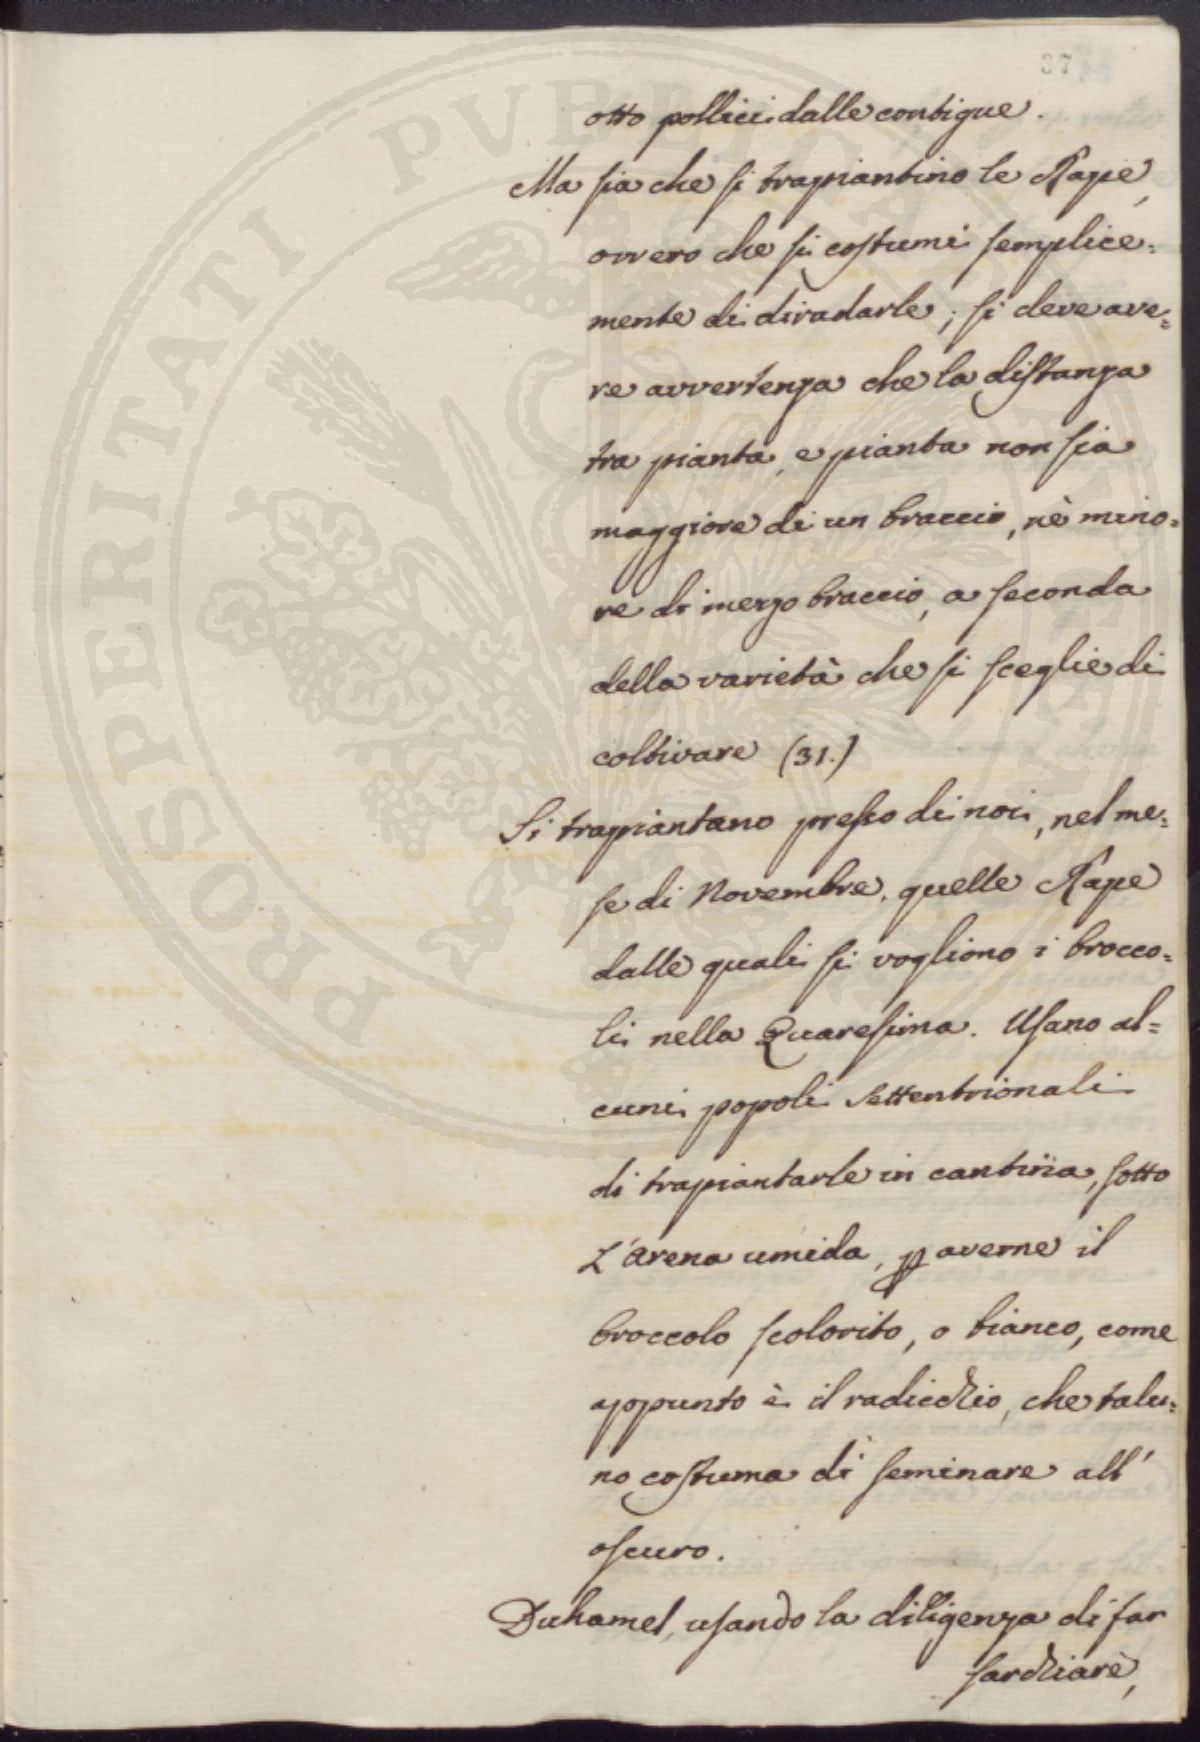 37
otto pollici dalle contigue.
Ma sia che si trapiantino le Rape,
ovvero che si costumi semplice=
mente di diradarle; si deve ave=
re avvertenza che la distanza
tra pianta, e pianta non sia
maggiore di un braccio, nè mino=
re di mezzo braccio, a seconda
della varietà che si sceglie di
coltivare (31.)
Si trapiantano presso di noi, nel me=
se di Novembre, quelle Rape
dalle quali si vogliono i brocco=
li nella Quaresima. Usano al=
cuni popoli Settentrionali
di trapiantarle in cantina, sotto
L'arena umida, p averne il
broccolo scolorito, o bianco, come
appunto è il radicchio, che talu=
no costuma di seminare all'
oscuro.
Duhamel, usando la diligenza di far
sarchiare,
PROSPERITATI PUBLICAE AUGENDAE